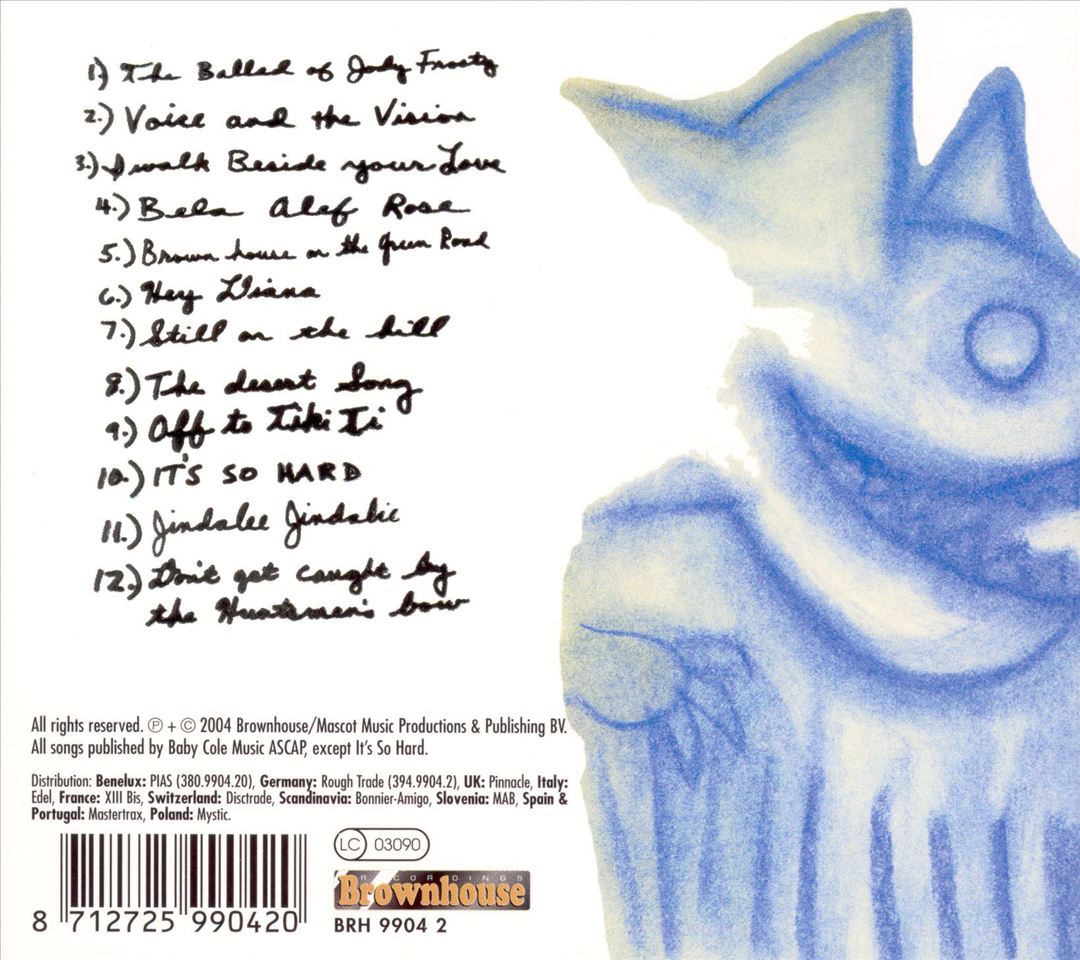 1) The Ballad of Jody Frosty
2.) Voice and the Vision
3.) I walk Beside your Love
4.) Bela Alef Rose
5.) Brown house on the Green Road
6.) Hey Diana
7.) Still on the hill
8.) The desert Song
9.) Off to Tiki Ti
10.) IT'S SO HARD
11.) Jindalee Jindalie
12.) Don't get caught by
the Huntsmen's bow
All rights reserved. ℗ + © 2004 Brownhouse/Mascot Music Productions & Publishing BV.
All songs published by Baby Cole Music ASCAP, except It's So Hard.
Distribution: Benelux: PIAS (380.9904.20), Germany: Rough Trade (394.9904.2), UK: Pinnacle, Italy:
Edel, France: XIII Bis, Switzerland: Disctrade, Scandinavia: Bonnier-Amigo, Slovenia: MAB, Spain &
Portugal: Mastertrax, Poland: Mystic.
LC 03090
RECORDINGS
Brownhouse
8 712725 990420
BRH 9904 2